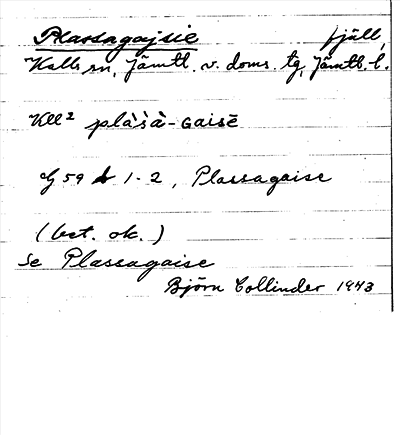 Plassagajsie fjäll,
Kalls sn, Jämtl. v. doms. tg, Jämtl. l.
Kll² plàs̀à-Gaisē
G 59 1-2, Plassagaise
(bet. ok.)
Se Plassagaise
Björn Collinder 1943